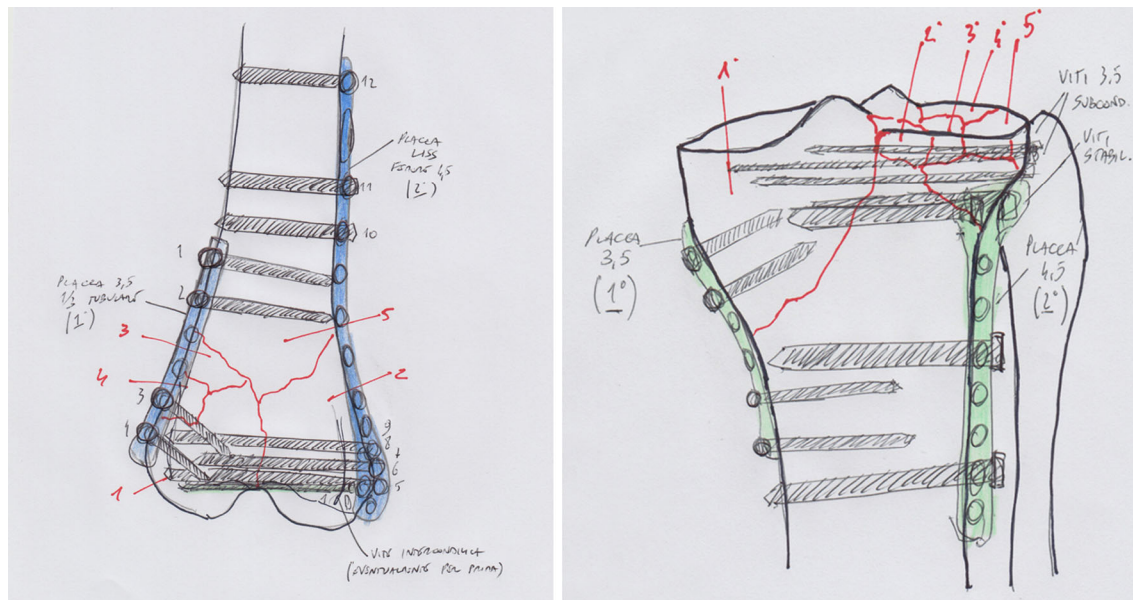 12
PLACCA
LISS
4,5
(2°)
11
10
1
PLACCA 3,5
1/3 TUBULARE
(1°)
2
3
5
4
2
3
4
9
8
7
6
5
1
VITE INTERCONDILICA
(EVENTUALMENTE PER PRIMA)
1°
2°
3°
4°
5°
VITI 3,5
SUBCOND.
VITI
STABIL.
PLACCA
3,5
(1°)
PLACCA
4,5
(2°)